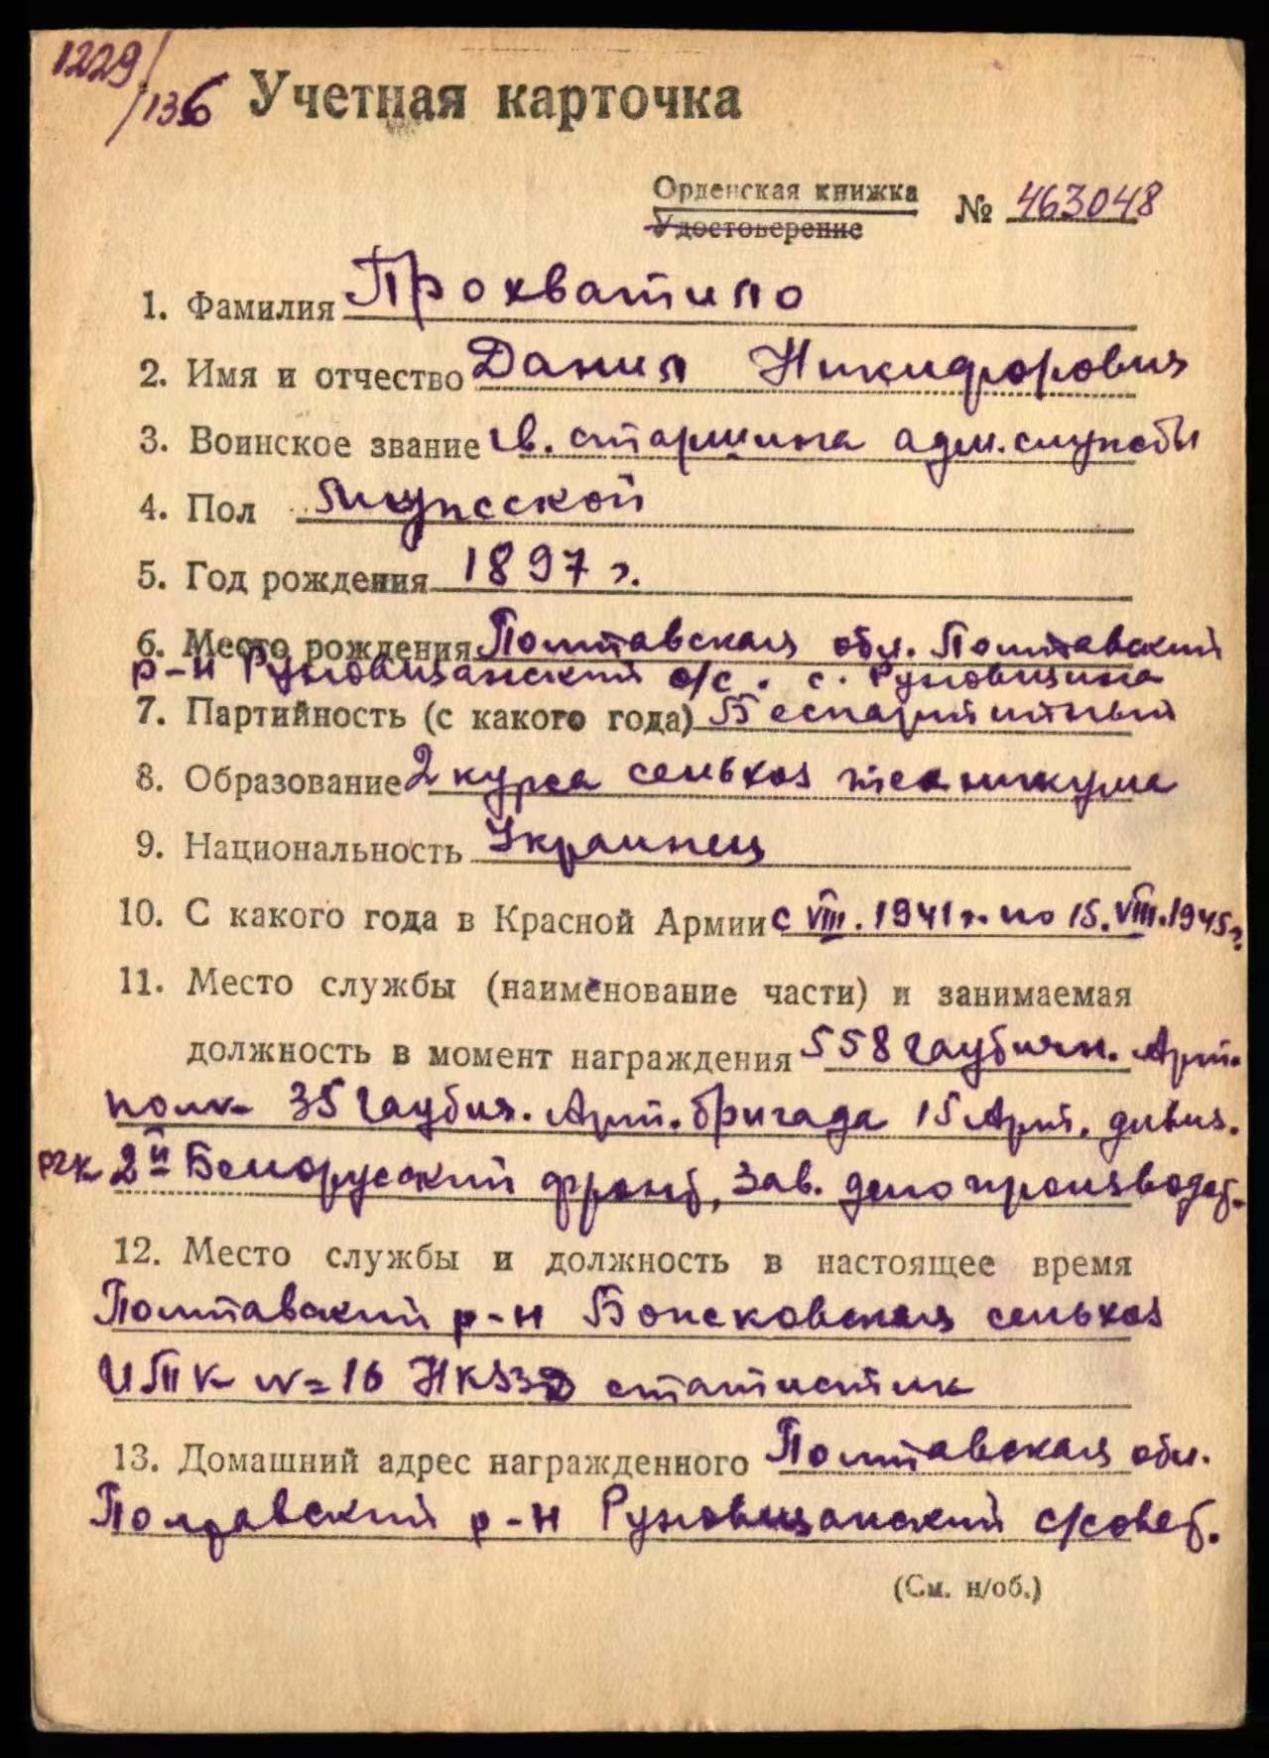 1229/
/136 Учетная карточка
Орденская книжка № 463048
Удостоверение
1. Фамилия Прохватило
2. Имя и отчество Данил Никифорович
3. Воинское звание гв. старшина адм. службы
4. Пол мужской
5. Год рождения 1897 г.
6. Место рождения Полтавская обл. Полтавский
р-н Руновщанский с/с. с. Руновщина
7. Партийность (с какого года) Беспартийный
8. Образование 2 курса сельхоз техникума
9. Национальность Украинец
10. С какого года в Красной Армии с VIII. 1941 г. по 15. VIII. 1945 г.
11. Место службы (наименование части) и занимаемая
должность в момент награждения 558 гаубичн. Арт.
полк 35 гаубич. Арт. бригада 15 Арт. дивиз.
ргк 2й Белорусский фронт, Зав. делопроизводст.
12. Место службы и должность в настоящее время
Полтавский р-н сельхоз
ИТК №=16 НКВД статистик
13. Домашний адрес награжденного Полтавская обл.
Полтавский р-н Руновщанский с/совет.
(См. н/об.)